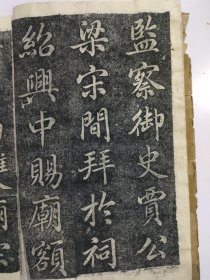 監察御史賈公
梁宋間拜於祠
紹興中賜廟額